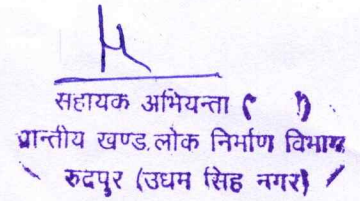 सहायक अभियन्ता ( )
प्रान्तीय खण्ड.लोक निर्माण विभाग
रुद्रपुर (उधम सिंह नगर)